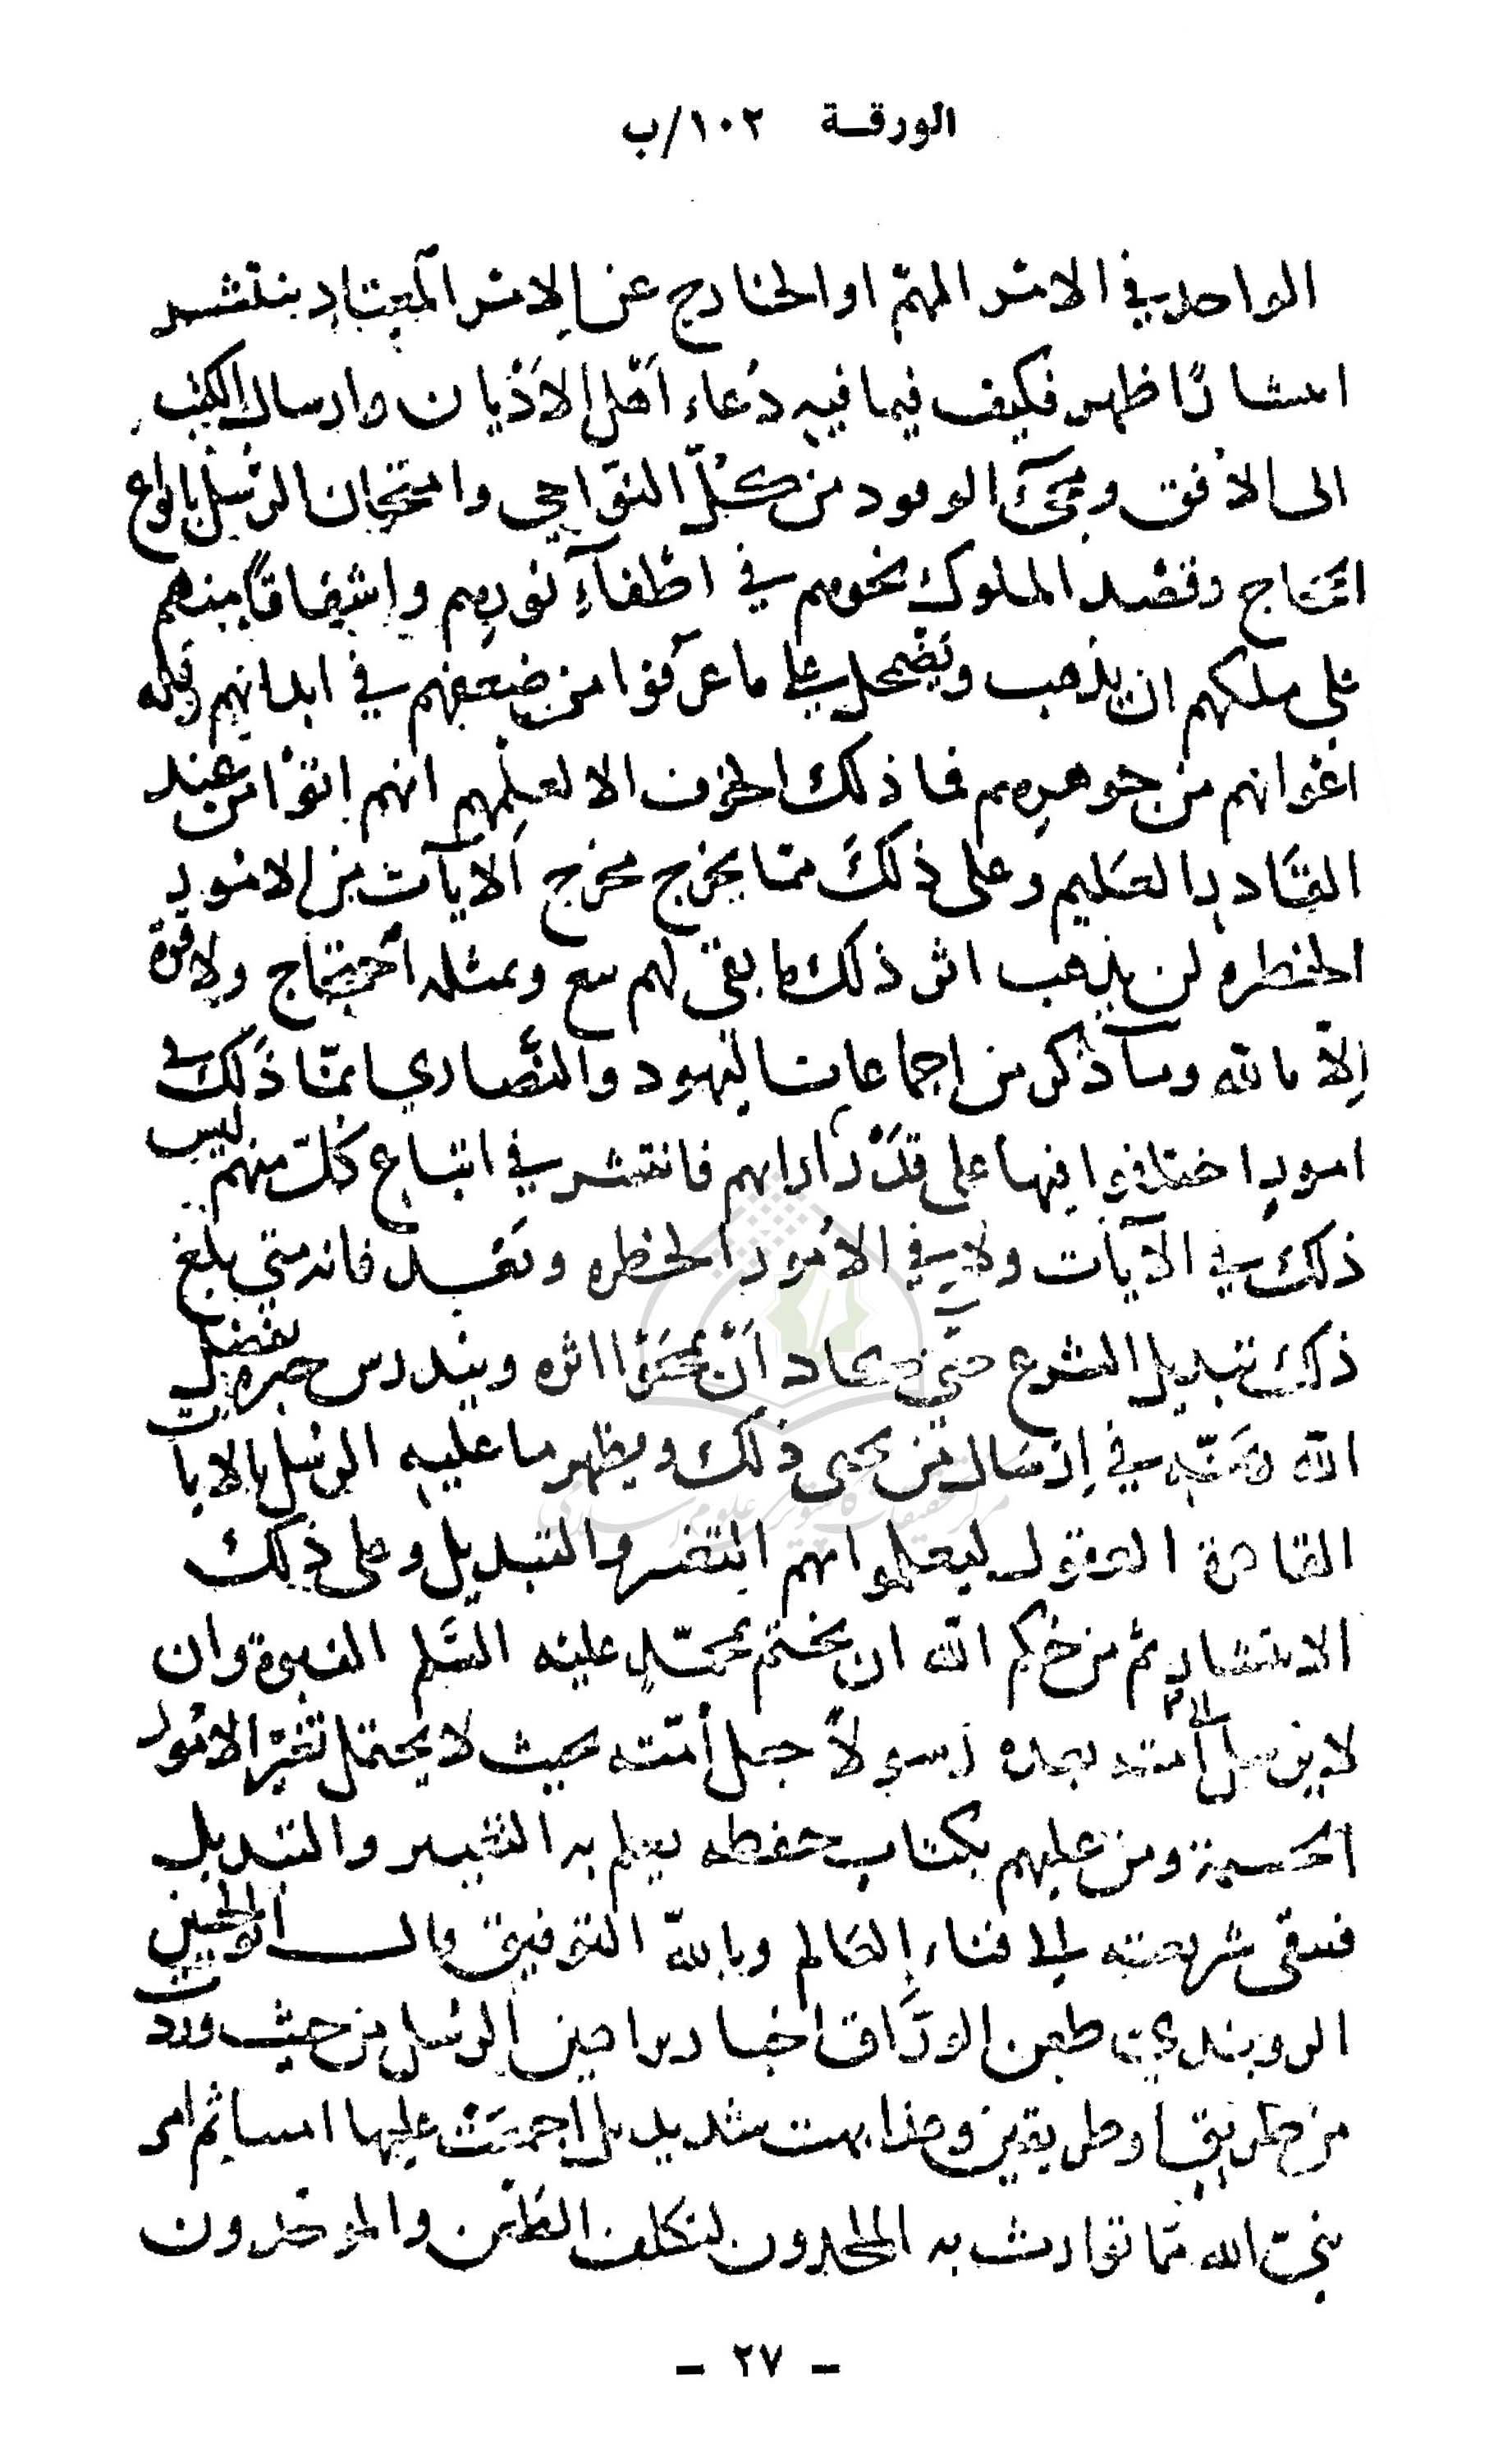 الورقة ١٠٢/ب
الواحد في الامر المهم او الخارج عن الامر المعتاد ينتشر
انتشارًا ظهر فكيف فيما فيه دُعاء اَهل الاَدْيان وارسال الكتب
الى الافق ومجئ الوفود من كُلّ النّواحي وامتحان الرّسل بانواع
الحجاج وقصد الملوك نحوهم في اطفآءِ نورهم واشفاقًا منهم
على ملكهم ان يذهب ويضمحل على ما عرَفوا من ضعفهم في ابدانهم وقله
اعوانهم من جوهرهم فما ذلك الخوف الا لعلمهم انهم اتوْا من عند
القادر العليم وعلى ذلك ممّا يخرج مخرج الآيات من الامور
الخطره لن يذهب اثر ذلك ما بقى لهم سمع وبمثله احتجاج ولا قوة
اِلاّ بالله وسآذكر من اجماعات اليهود والنَّصارى انمّا ذلك في
امور اختلفوا فيها على قدْر ارآئهم فانتشر في اتباع كلّ منهم ليس
ذلك في الآيات ولا في الامور الخطره وبَعد فانه متى بلغ
ذلك تبديل الشرع حتى كاد اَنْ يمحوا اثره ويندرس خبره يفضل
الله بمَنّه في اِرسال من يحيى ذلك ويظهر ما عليه الرسل بالايات
القاهرة العقول ليعلموا بهم التغير والتبديل وعلى ذلك
الانتشار ثم من حكم الله ان يختم بمحمّد عليه السَّلم النبوة وان
لا يرسل الى امته بعده رسولاً جعل اُمّته بحيث لا يحتمل تغيّر الامور
الجسيمة ومن عليهم بكتابٍ حفظه يعلم به التغيير والتبديل
فتبقى شريعته الى فناء العالم وبالله التوفيق قال ابو الحسين
الروندي طعن الورّاق اخبار براهين الرسل من حيث وردت
من طريق او طريقين وهذا بهت شديد بل اجمعت عليها
نبي الله ممّا توارث به الملحدون لتكلف الطّعن والموحدون
- ٢٧ -